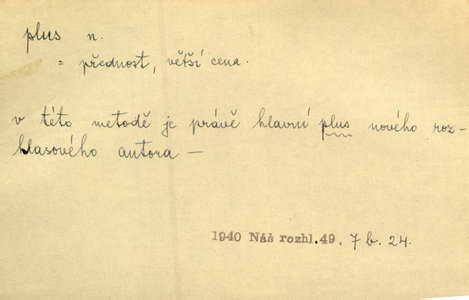 plus n.
= přednost, větší cena.
v této metodě je právě hlavní plus nového roz-
hlasového autora —
1940 Náš rozhl. 49. 7 b. 24.